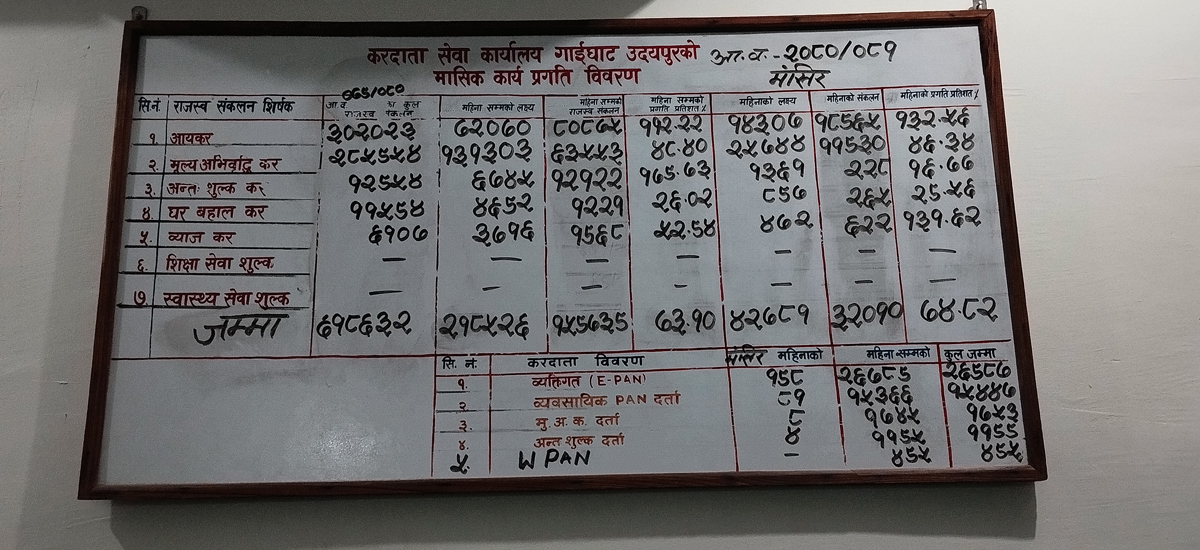 करदाता सेवा कार्यालय गाईघाट उदयपुरको आ.व.-२०८०/०८१
मासिक कार्य प्रगति विवरण मंसिर
सि.नं. राजस्व संकलन शिर्षक आ व ०७९/०८० मा कुल राजस्व संकलन महिना सम्मको लक्ष्य महिना सम्मको राजस्व संकलन महिना सम्मको प्रगति प्रतिशत % महिनाको लक्ष्य महिनाको संकलन महिनाको प्रगति प्रतिशत %
१. आयकर ३०२०२३ ७२०७० ८०८७५ ११२.२२ १४३०७ १८९६५ १३२.५६
२. मूल्य अभिवृद्धि कर २८५५५४ १३१३०३ ६३५५३ ४८.४० २५७४४ ११९३० ४६.३४
३. अन्तः शुल्क कर १२५५४ ६७४५ १२१२२ १३६१ २२८ १६.७७
४. घर बहाल कर ११५५४ ४६५२ १२२१ २६.०२ ८५७ २६५
५. व्याज कर ६१०७ ३७१६ १९६८ ५२.५४ ४७२ ६२२ १३१.६२
६. शिक्षा सेवा शुल्क — — — — — — —
७. स्वास्थ्य सेवा शुल्क — — — — — — —
जम्मा ६१८६३२ २१८५२६ ७३.१० ४२७८१ ३२०१० ७४.८२
सि. नं. करदाता विवरण मंसिर महिनाको महिना सम्मको कुल जम्मा
१. व्यक्तिगत (E-PAN) १५८
२ व्यवसायिक PAN दर्ता ८१ १५३६६ १५४४७
३. मु. अ. क. दर्ता ८ १७४५ १७५३
४. अन्त शुल्क दर्ता ४
५. W PAN – ४५५ ४५५